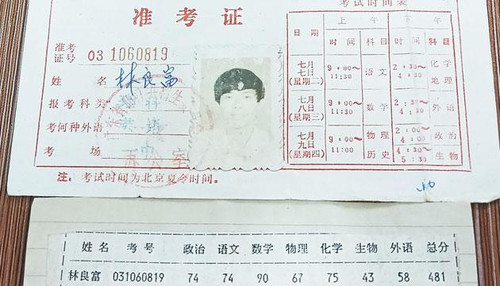 准考证
准考
证号 03 1060819
姓名 林良富
报考科类
考何种外语
考场
注：考试时间为北京夏令时间。
考试时间表
上午
时间 科目 时间 科目
七月
七日
(星期二)
9:00～
11:30
语文
2:30～
化学
地理
七月
八日
(星期三)
9:00～
数学
2:30～
4:30
外语
七月
九日
(星期四)
9:00～
11:00
物理
历史
2:30～
政治
生物
姓名 考号 政治 语文 数学 物理 化学 生物 外语 总分
林良富 031060819 74 74 90 67 75 43 58 481